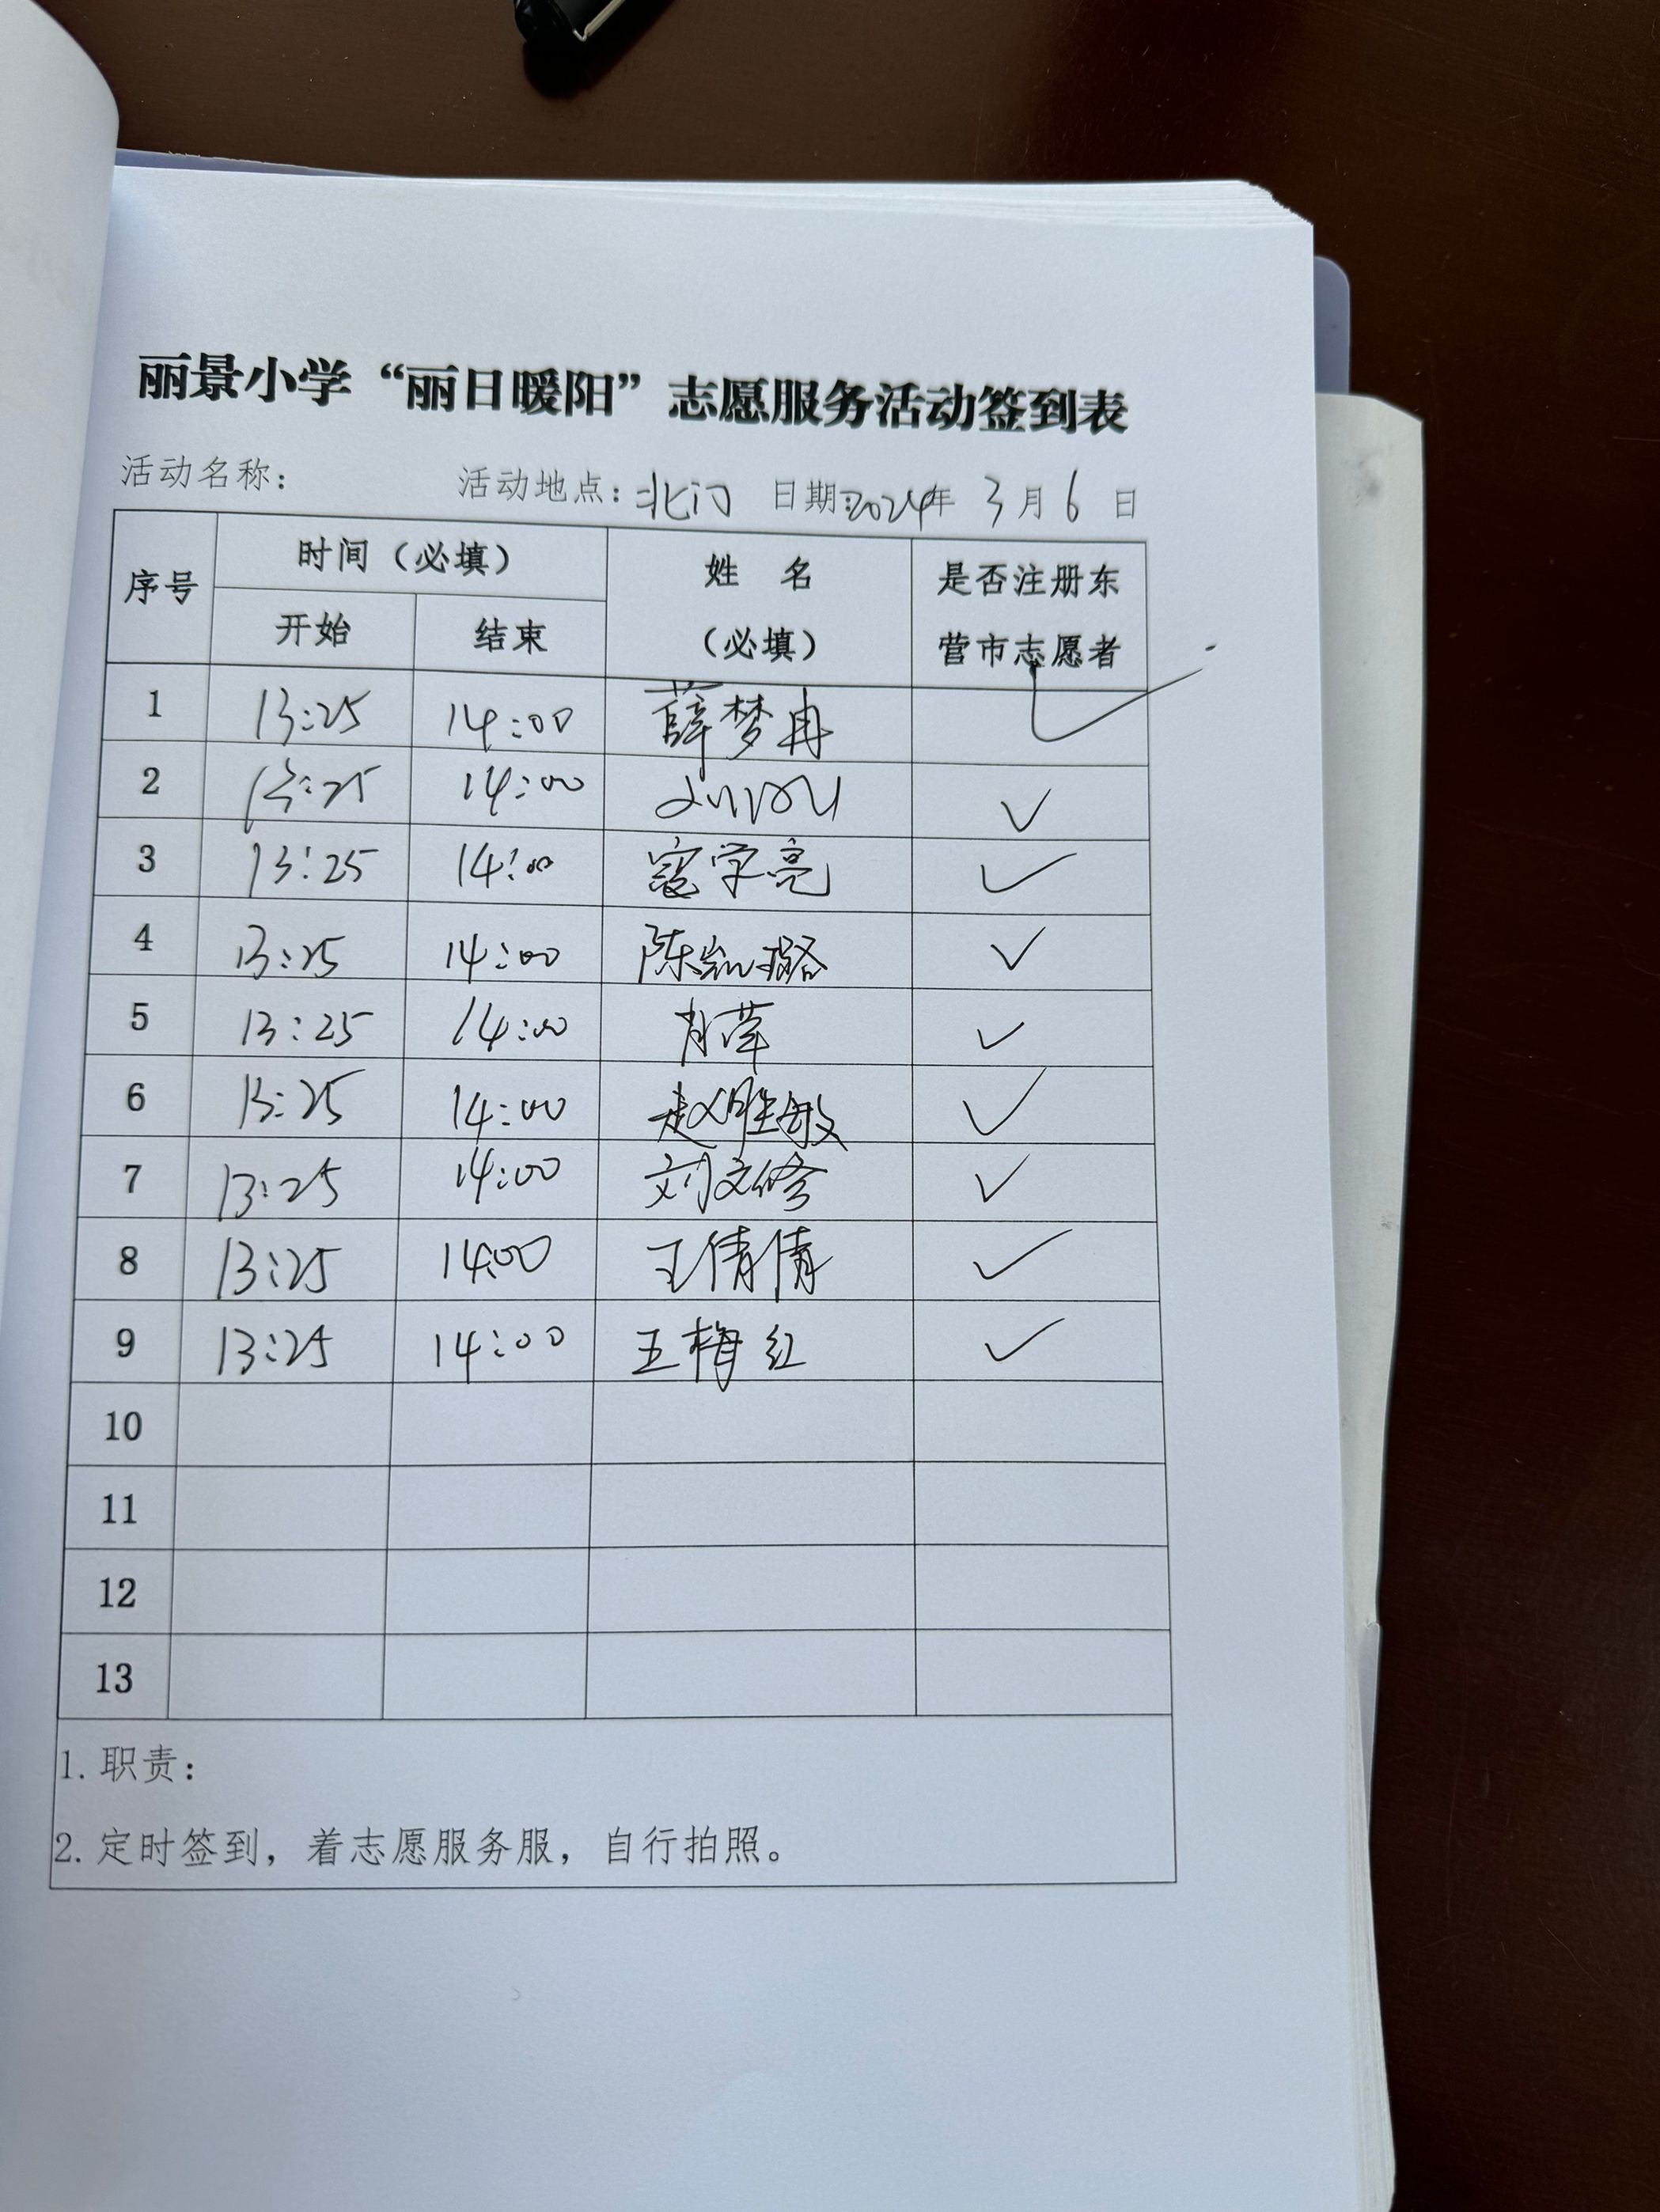 丽景小学“丽日暖阳”志愿服务活动签到表
活动名称： 活动地点：北门 日期：2024年 3月 6日
序号 时间（必填） 姓 名（必填） 是否注册东营市志愿者
开始 结束
1 13:25 14:00 薛梦冉 ✓
2 13:25 14:00 ✓
3 13:25 14:00 寇学亮 ✓
4 13:25 14:00 陈凯璐 ✓
5 13:25 14:00 肖萍 ✓
6 13:25 14:00 赵胜敏 ✓
7 13:25 14:00 刘文修 ✓
8 13:25 14:00 王倩倩 ✓
9 13:25 14:00 王梅红 ✓
10
11
12
13
1. 职责：
2. 定时签到，着志愿服务服，自行拍照。